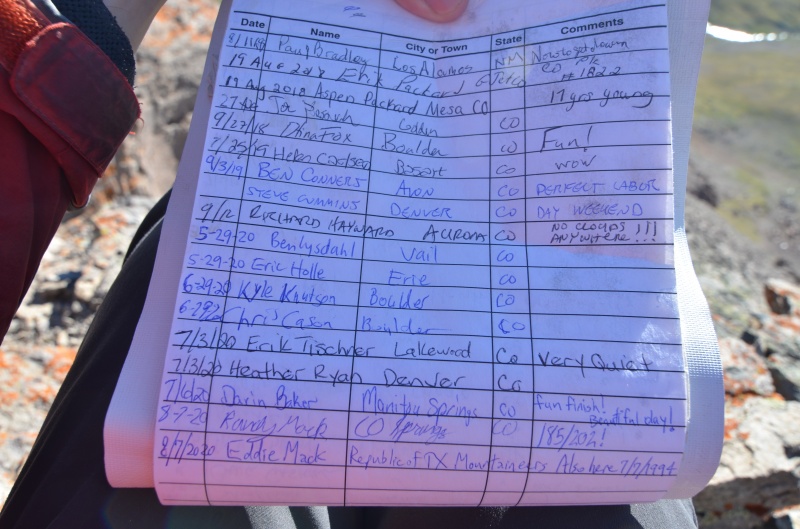 Date Name City or Town State Comments
8/11/18 Paul Bradley Los Alamos NM
19 Aug 2018 Erik Packard CO #1822
19 Aug 2018 Aspen Packard Mesa CO 17 yrs young
Joe CO
9/27/18 Dhina Fox Boulder CO Fun!
7/25/19 Helen Basalt CO WOW
9/3/19 BEN CONNERS AVON CO PERFECT LABOR
STEVE CUMMINS DENVER CO DAY WEEKEND
9/12 RICHARD HAYWARD AURORA CO NO CLOUDS ANYWHERE!!!
5-29-20 Ben Lysdahl Vail CO
5-29-20 Eric Holle Erie CO
6-29-20 Kyle Knutson Boulder CO
6-29-20 Chris Cason Boulder CO
7/3/20 Erik Tischner Lakewood Co Very Quiet
7/3/20 Heather Ryan Denver Co
7/6/20 Darin Baker Manitou Springs CO fun finish! Beautiful day!
8-7-20 Randy Mack CO Springs CO 185/202!
8/7/2020 Eddie Mack Republic of TX Mountaineers Also here 7/7/1994